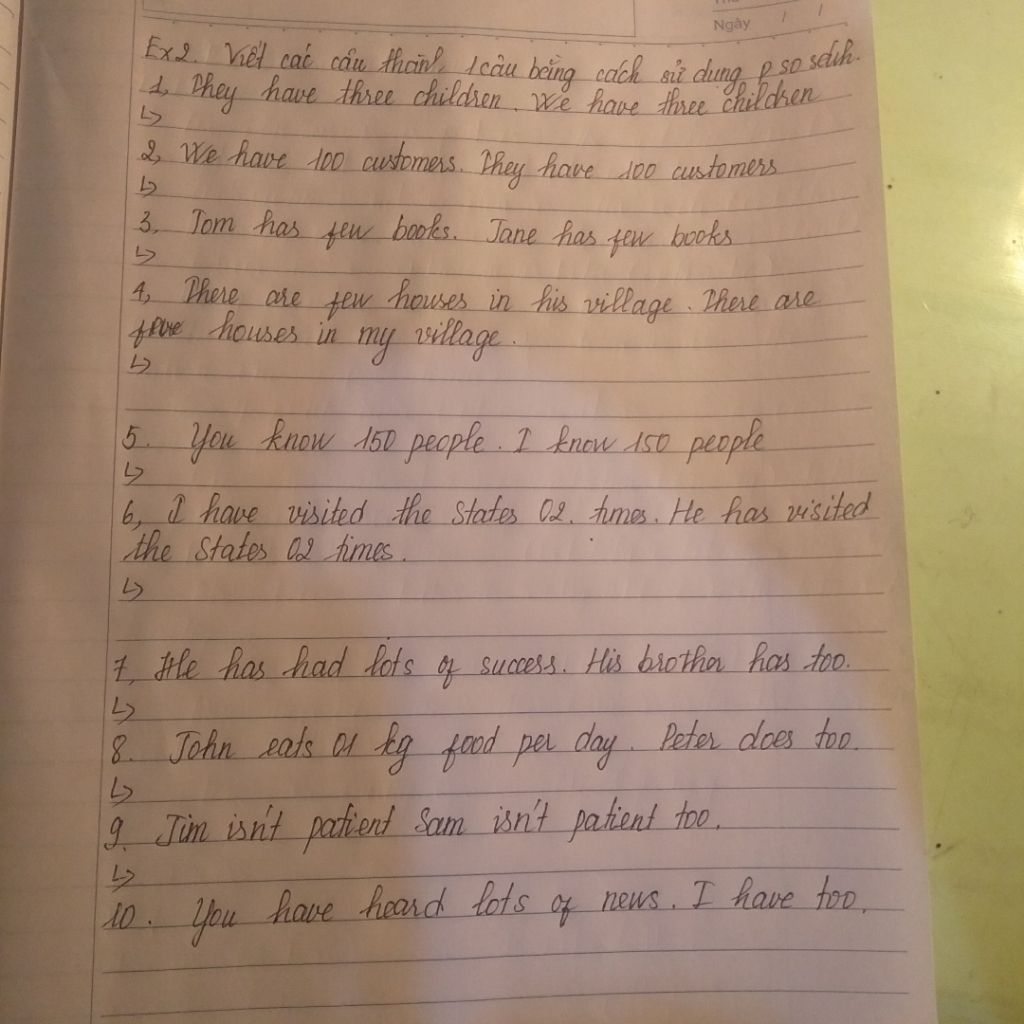 Ngày / /
Ex2. Viết các câu thành 1 câu bằng cách sử dụng p so sánh.
1, They have three children. We have three children
↳
2, We have 100 customers. They have 100 customers
↳
3, Tom has few books. Jane has few books
↳
4, There are few houses in his village. There are
houses in my village.
↳
5. You know 150 people. I know 150 people
↳
6, I have visited the States 02. times. He has visited
the States 02 times.
↳
7, He has had lots of success. His brother has too.
↳
8. John eats 01 kg food per day. Peter does too.
↳
9. Jim isn't patient Sam isn't patient too.
↳
10. You have heard lots of news. I have too.